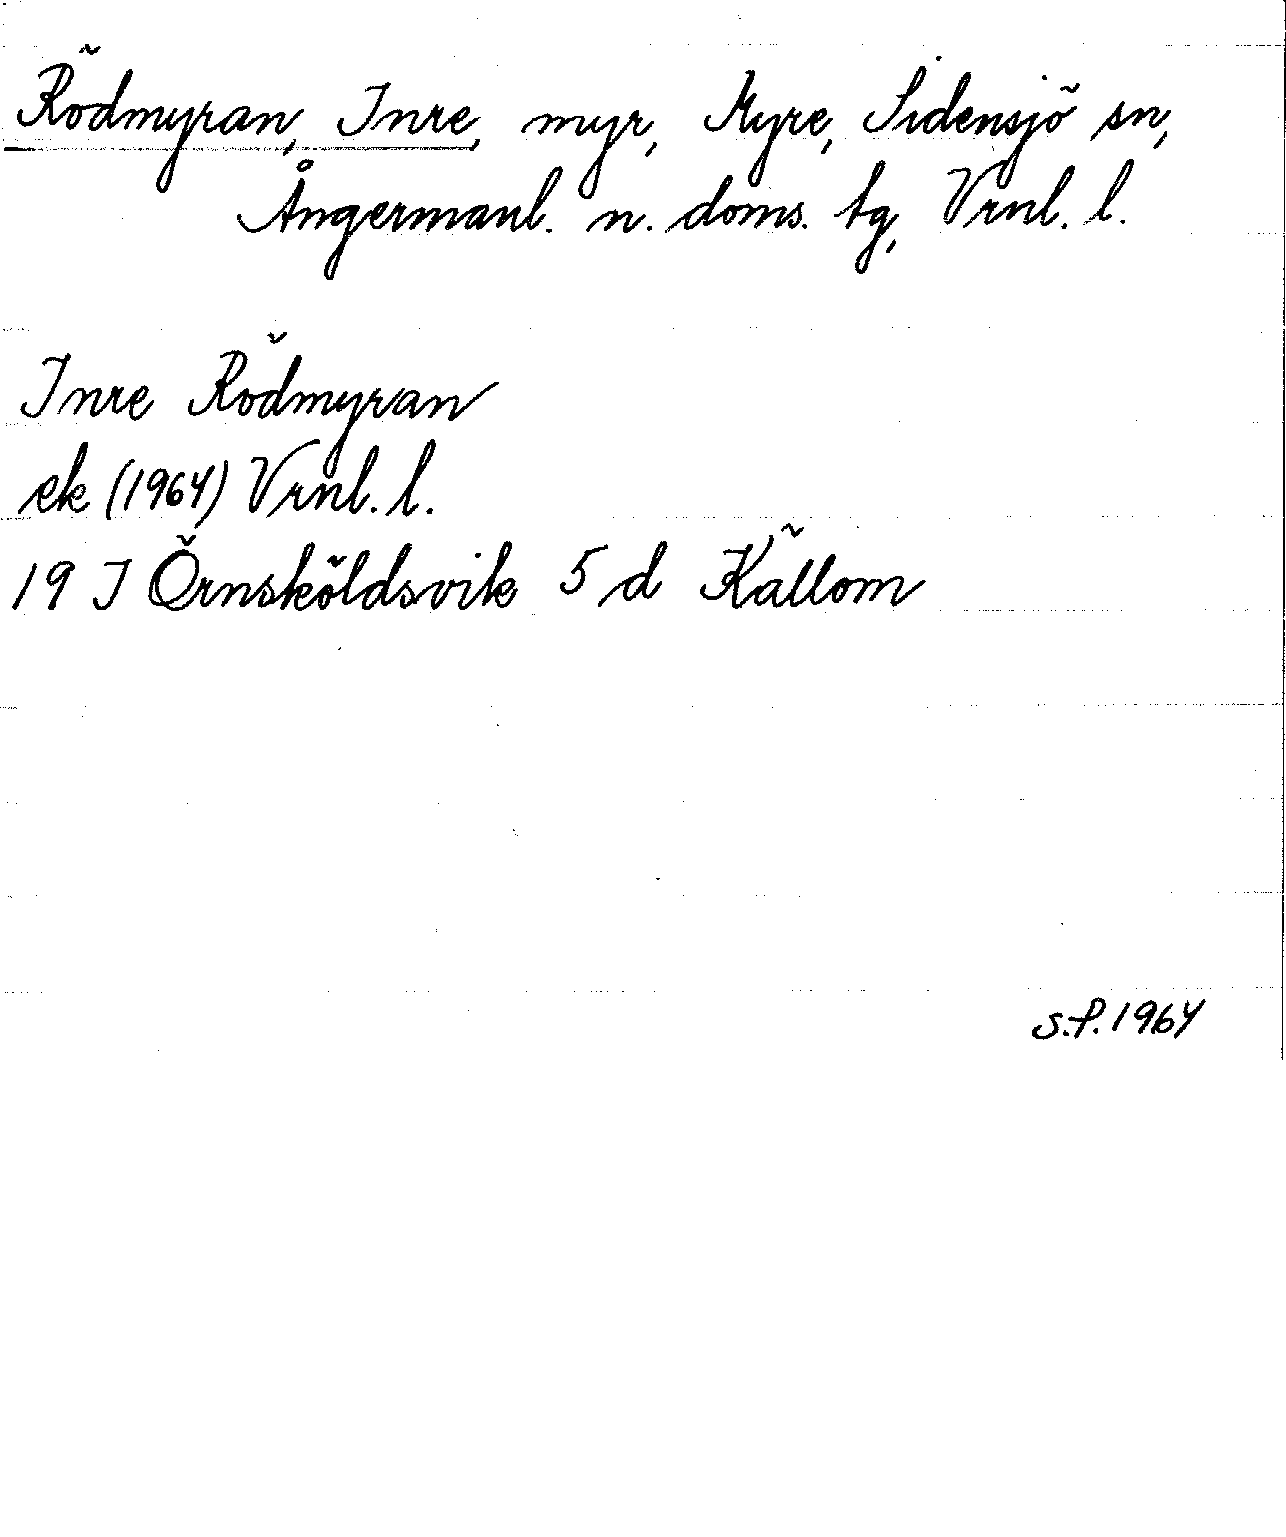 Rödmyran, Inre, myr, Myre, Sidensjö sn,
Ångermanl. n. doms. tg, Vrnl. l.
Inre Rödmyran
ek (1964) Vrnl. l.
19 I Örnsköldsvik 5 d Källom
s.f. 1964